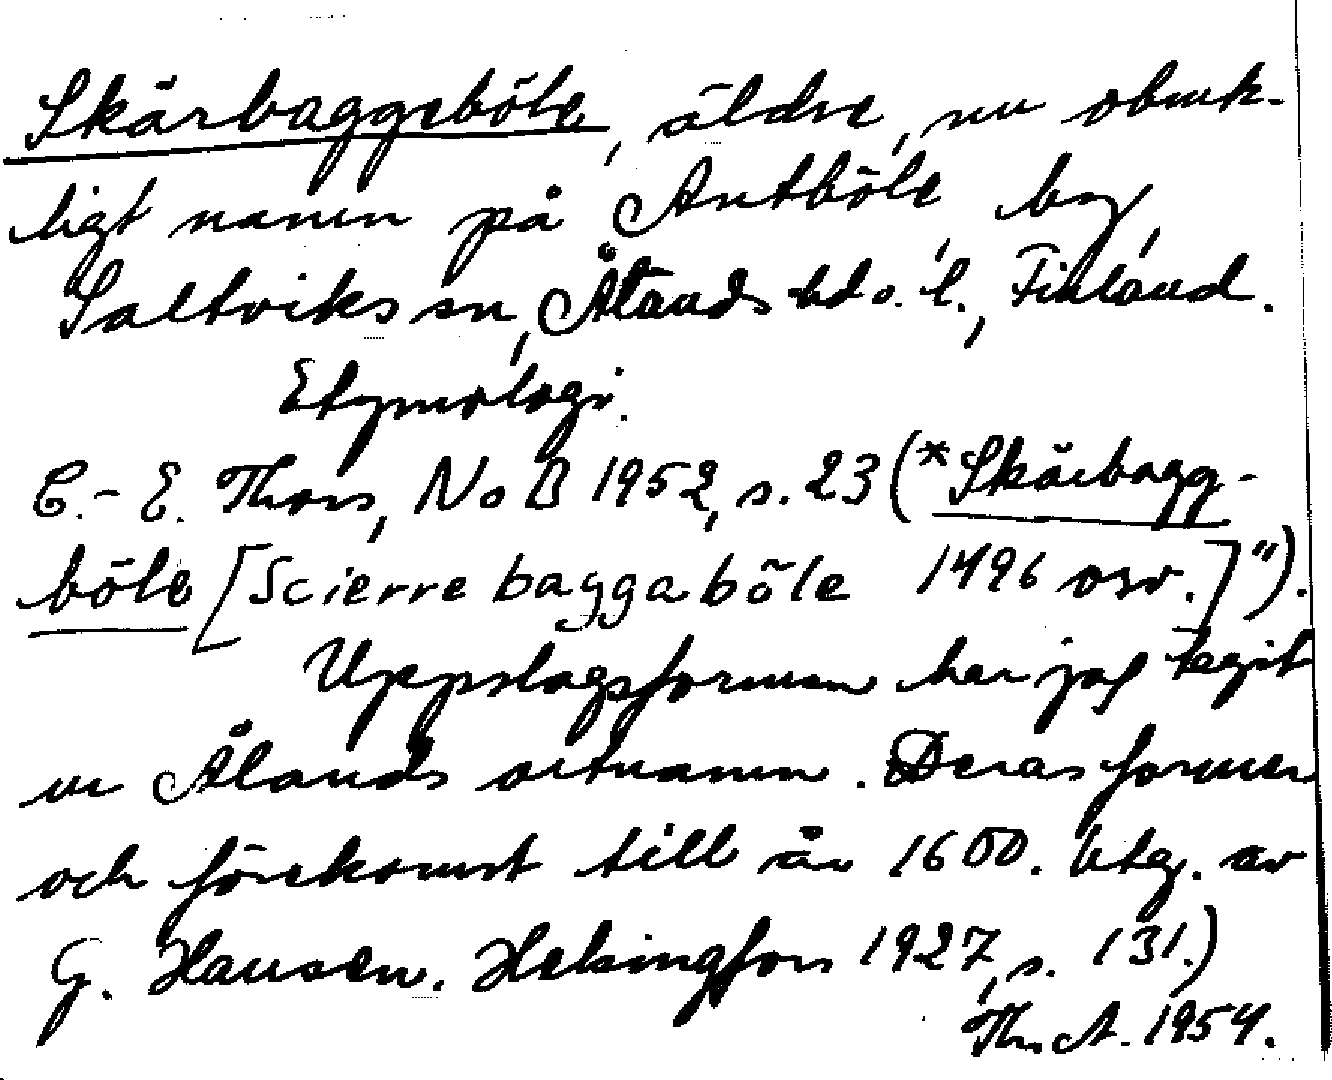 Skärbaggeböle, äldre, nu obruk-
ligt namn på Antböle, by,
Saltviks sn, Ålands hd o. l., Finland.
Etymologi.
C.-E. Thors, NoB 1952, s. 23 (*Skärbagg-
böle [Scierrebaggaböle 1496 osv.]").
Uppslagsformen har jag tagit
ur Ålands ortnamn. Deras former
och förekomst till år 1600. Utg. av
G. Hausen. Helsingfors 1927, s. 131.)
Th. A. 1954.